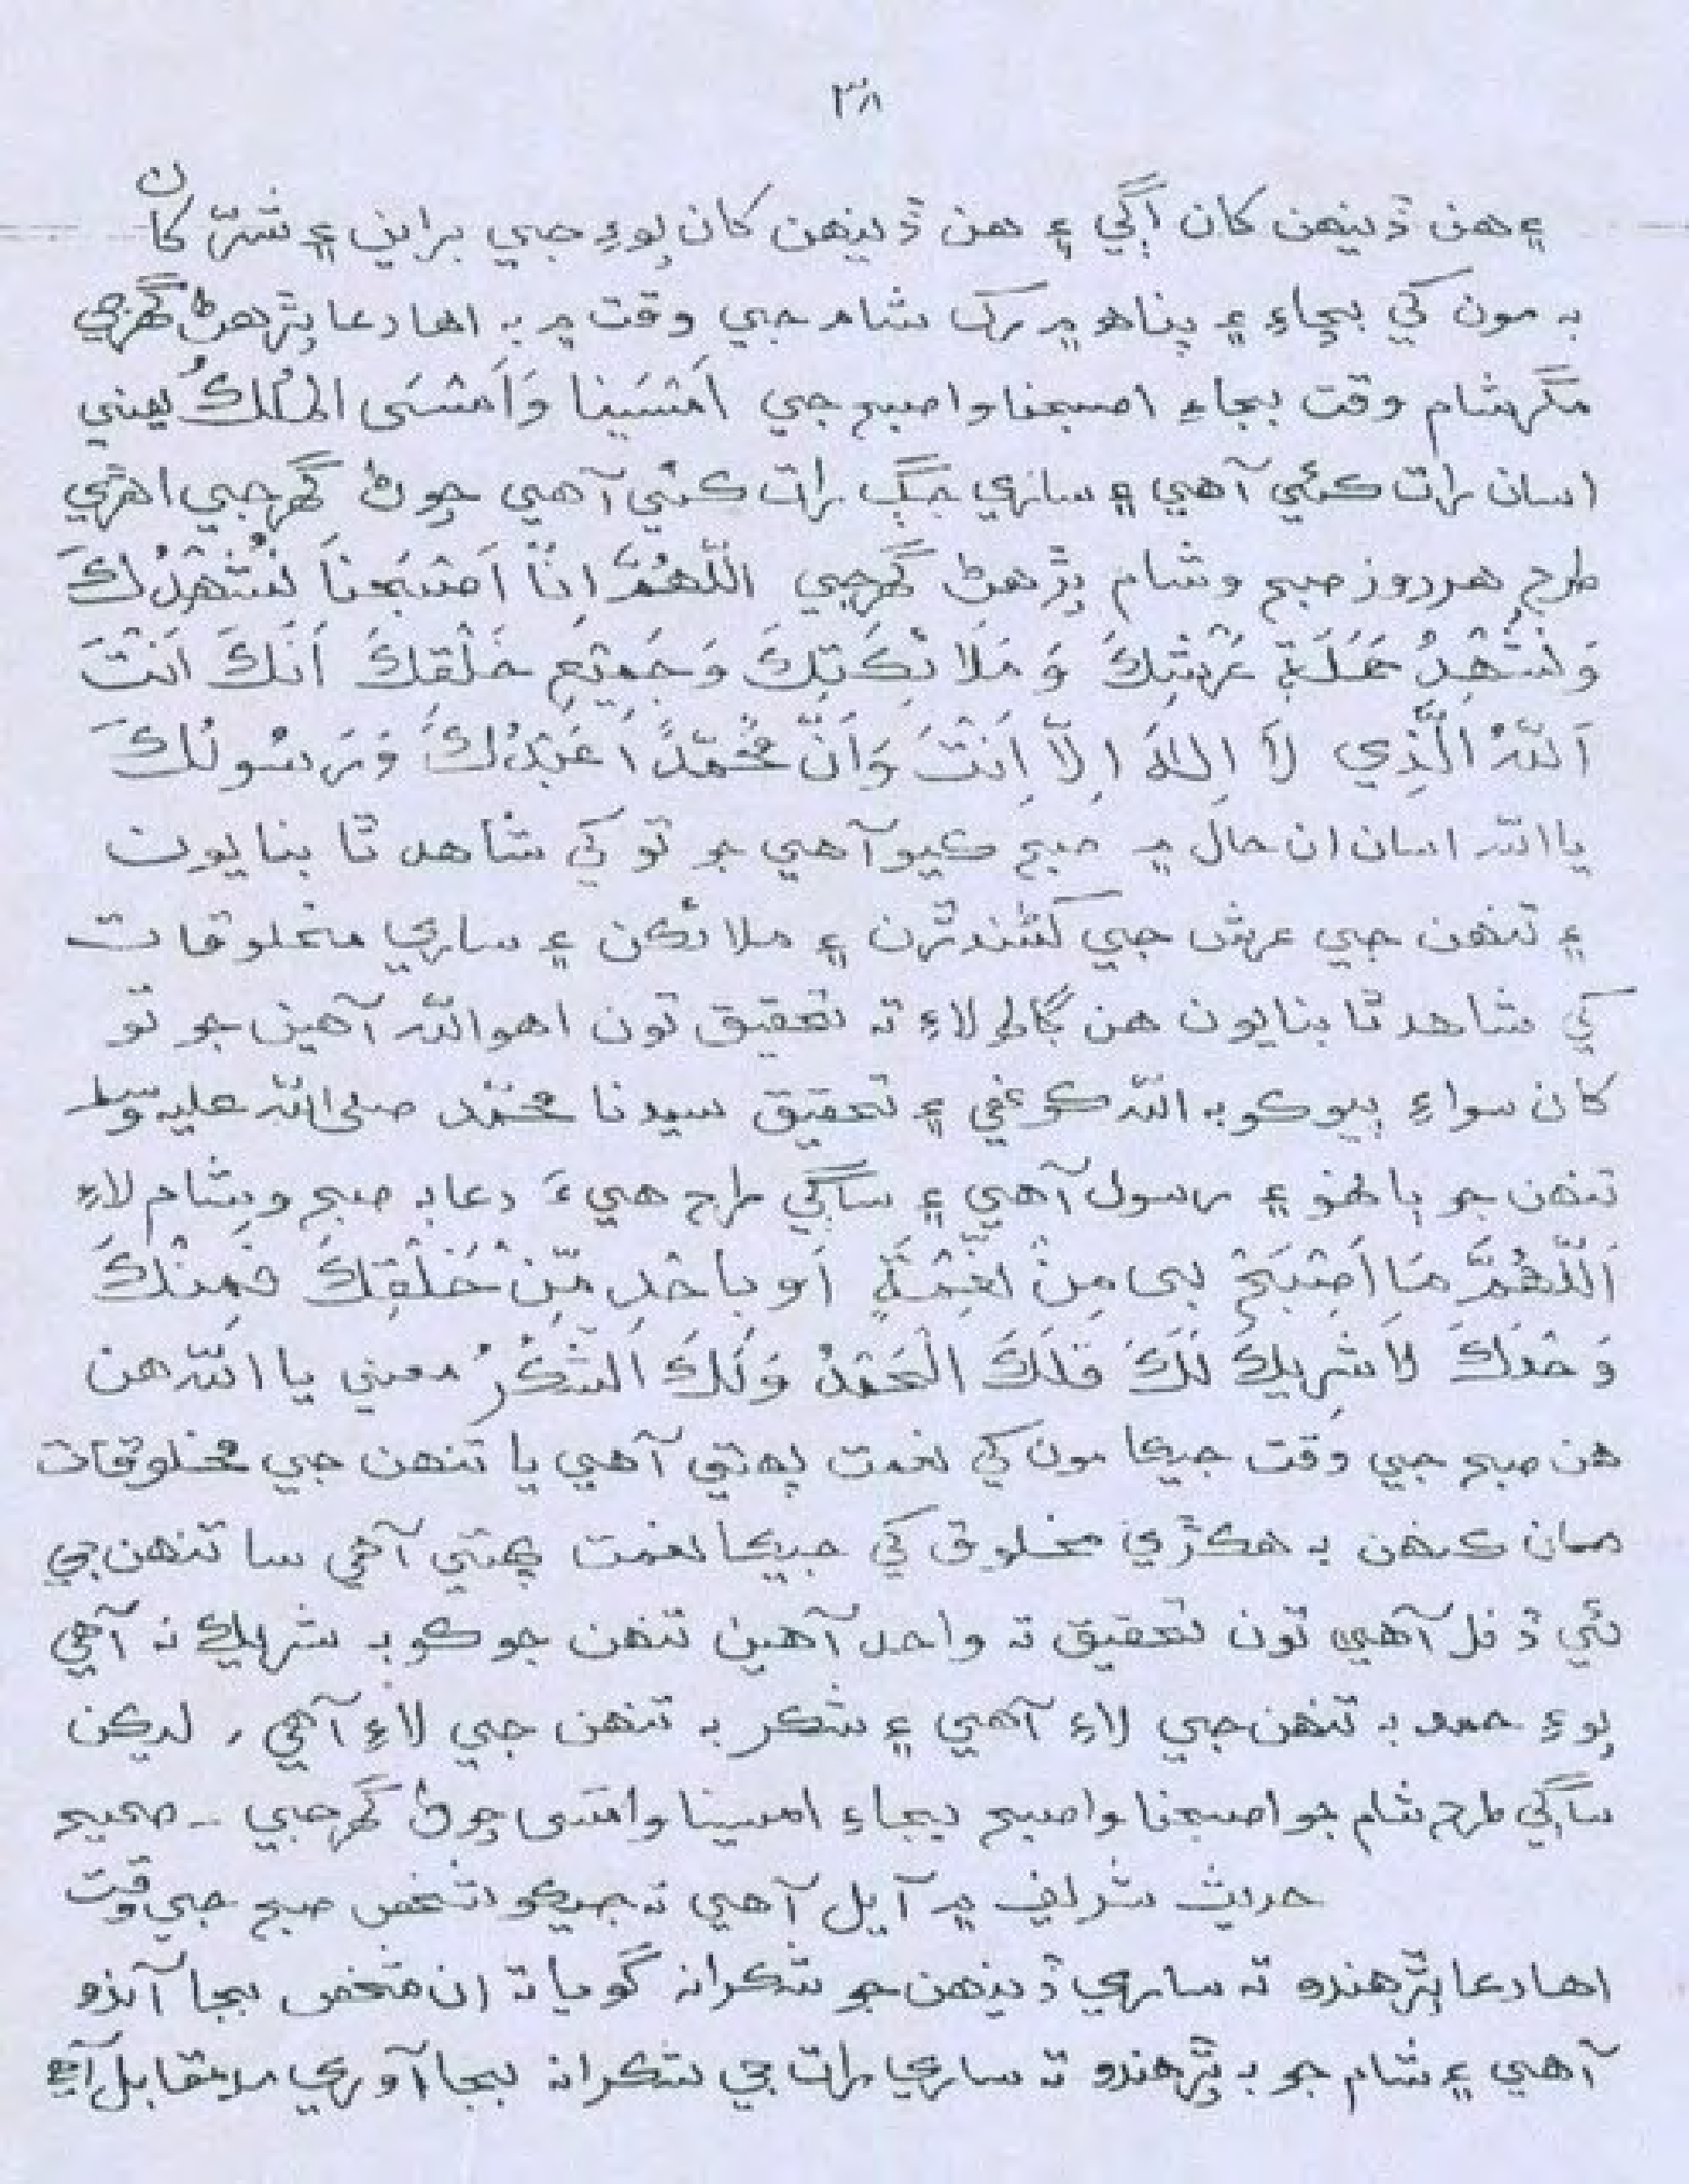 ٣٨
۽ هن ڏينهن کان اڳي ۽ هن ڏينهن کان پوءِ جي برائي ۽ شرّ کان
بہ مون کي بچاءِ ۽ پناهہ ۾ رک شام جي وقت ۾ بہ اها دعا پڙهڻ گهرجي
مگر شام وقت بجاءِ اصبحنا واصبح جي اَمْسَينا وَاَمْسَى المُلكُ يعني
اسان رات ڪئي آهي ۽ ساري جڳ رات ڪئي آهي چوڻ گهرجي اهڙي
طرح هر روز صبح وشام پڙهڻ گهرجي اللّٰهُمَّ اِنَّا اَصْبَحْنَا نُشْهِدُكَ
وَنُشْهِدُ حَمَلَةَ عَرْشِكَ وَ مَلَائِكَتِكَ وَجَمِيْعِ خَلْقِكَ اَنَّكَ اَنْتَ
اَللّٰهُ الَّذِي لَا اِلٰهَ اِلَّا اَنْتَ وَاَنَّ مُحَمَّدًا عَبْدُكَ وَرَسُولُكَ
يا الله اسان ان حال ۾ صبح ڪيو آهي جو تو کي شاهد ٿا بنايون
۽ تنهن جي عرش جي کڻندڙن ۽ ملائڪن ۽ ساري مخلوقات
کي شاهد ٿا بنايون هن ڳالهہ لاءِ تہ تحقيق تون اهو الله آهين جو تو
کان سواءِ ٻيو ڪو بہ الله ڪونهي ۽ تحقيق سيدنا محمّد صلى الله عليہ وسلم
تنهن جو ٻانهو ۽ رسول آهي ۽ ساڳي طرح هيءَ دعا بہ صبح وشام لاءِ
اَللّٰهُمَّ مَا اَصْبَحَ بِى مِنْ نِّعْمَةٍ اَو بِاَحَدٍ مِّنْ خَلْقِكَ فَمِنْكَ
وَحْدَكَ لَا شَرِيكَ لَكَ فَلَكَ الْحَمْدُ وَلَكَ الشُّكْرُ معني يا الله هن
هن صبح جي وقت جيڪا مون کي نعمت پهتي آهي يا تنهن جي مخلوقات
مان ڪنهن بہ هڪڙي مخلوق کي جيڪا نعمت پهتي آهي سا تنهن جي
ئي ڏنل آهي تون تحقيق تہ واحد آهين تنهن جو ڪو بہ شريڪ نہ آهي
پوءِ حمد بہ تنهن جي لاءِ آهي ۽ شڪر بہ تنهن جي لاءِ آهي، ليڪن
ساڳي طرح شام جو اصبحنا واصبح بجاءِ امسينا وامسى چوڻ گهرجي ۔ صحيح
حديث شريف ۾ آيل آهي تہ جيڪو شخص صبح جي وقت
اها دعا پڙهندو تہ ساري ڏينهن جو شڪرانہ گويا تہ ان شخص بجا آندو
آهي ۽ شام جو بہ پڙهندو تہ ساري رات جي شڪرانہ بجا آوري مقابل آهي